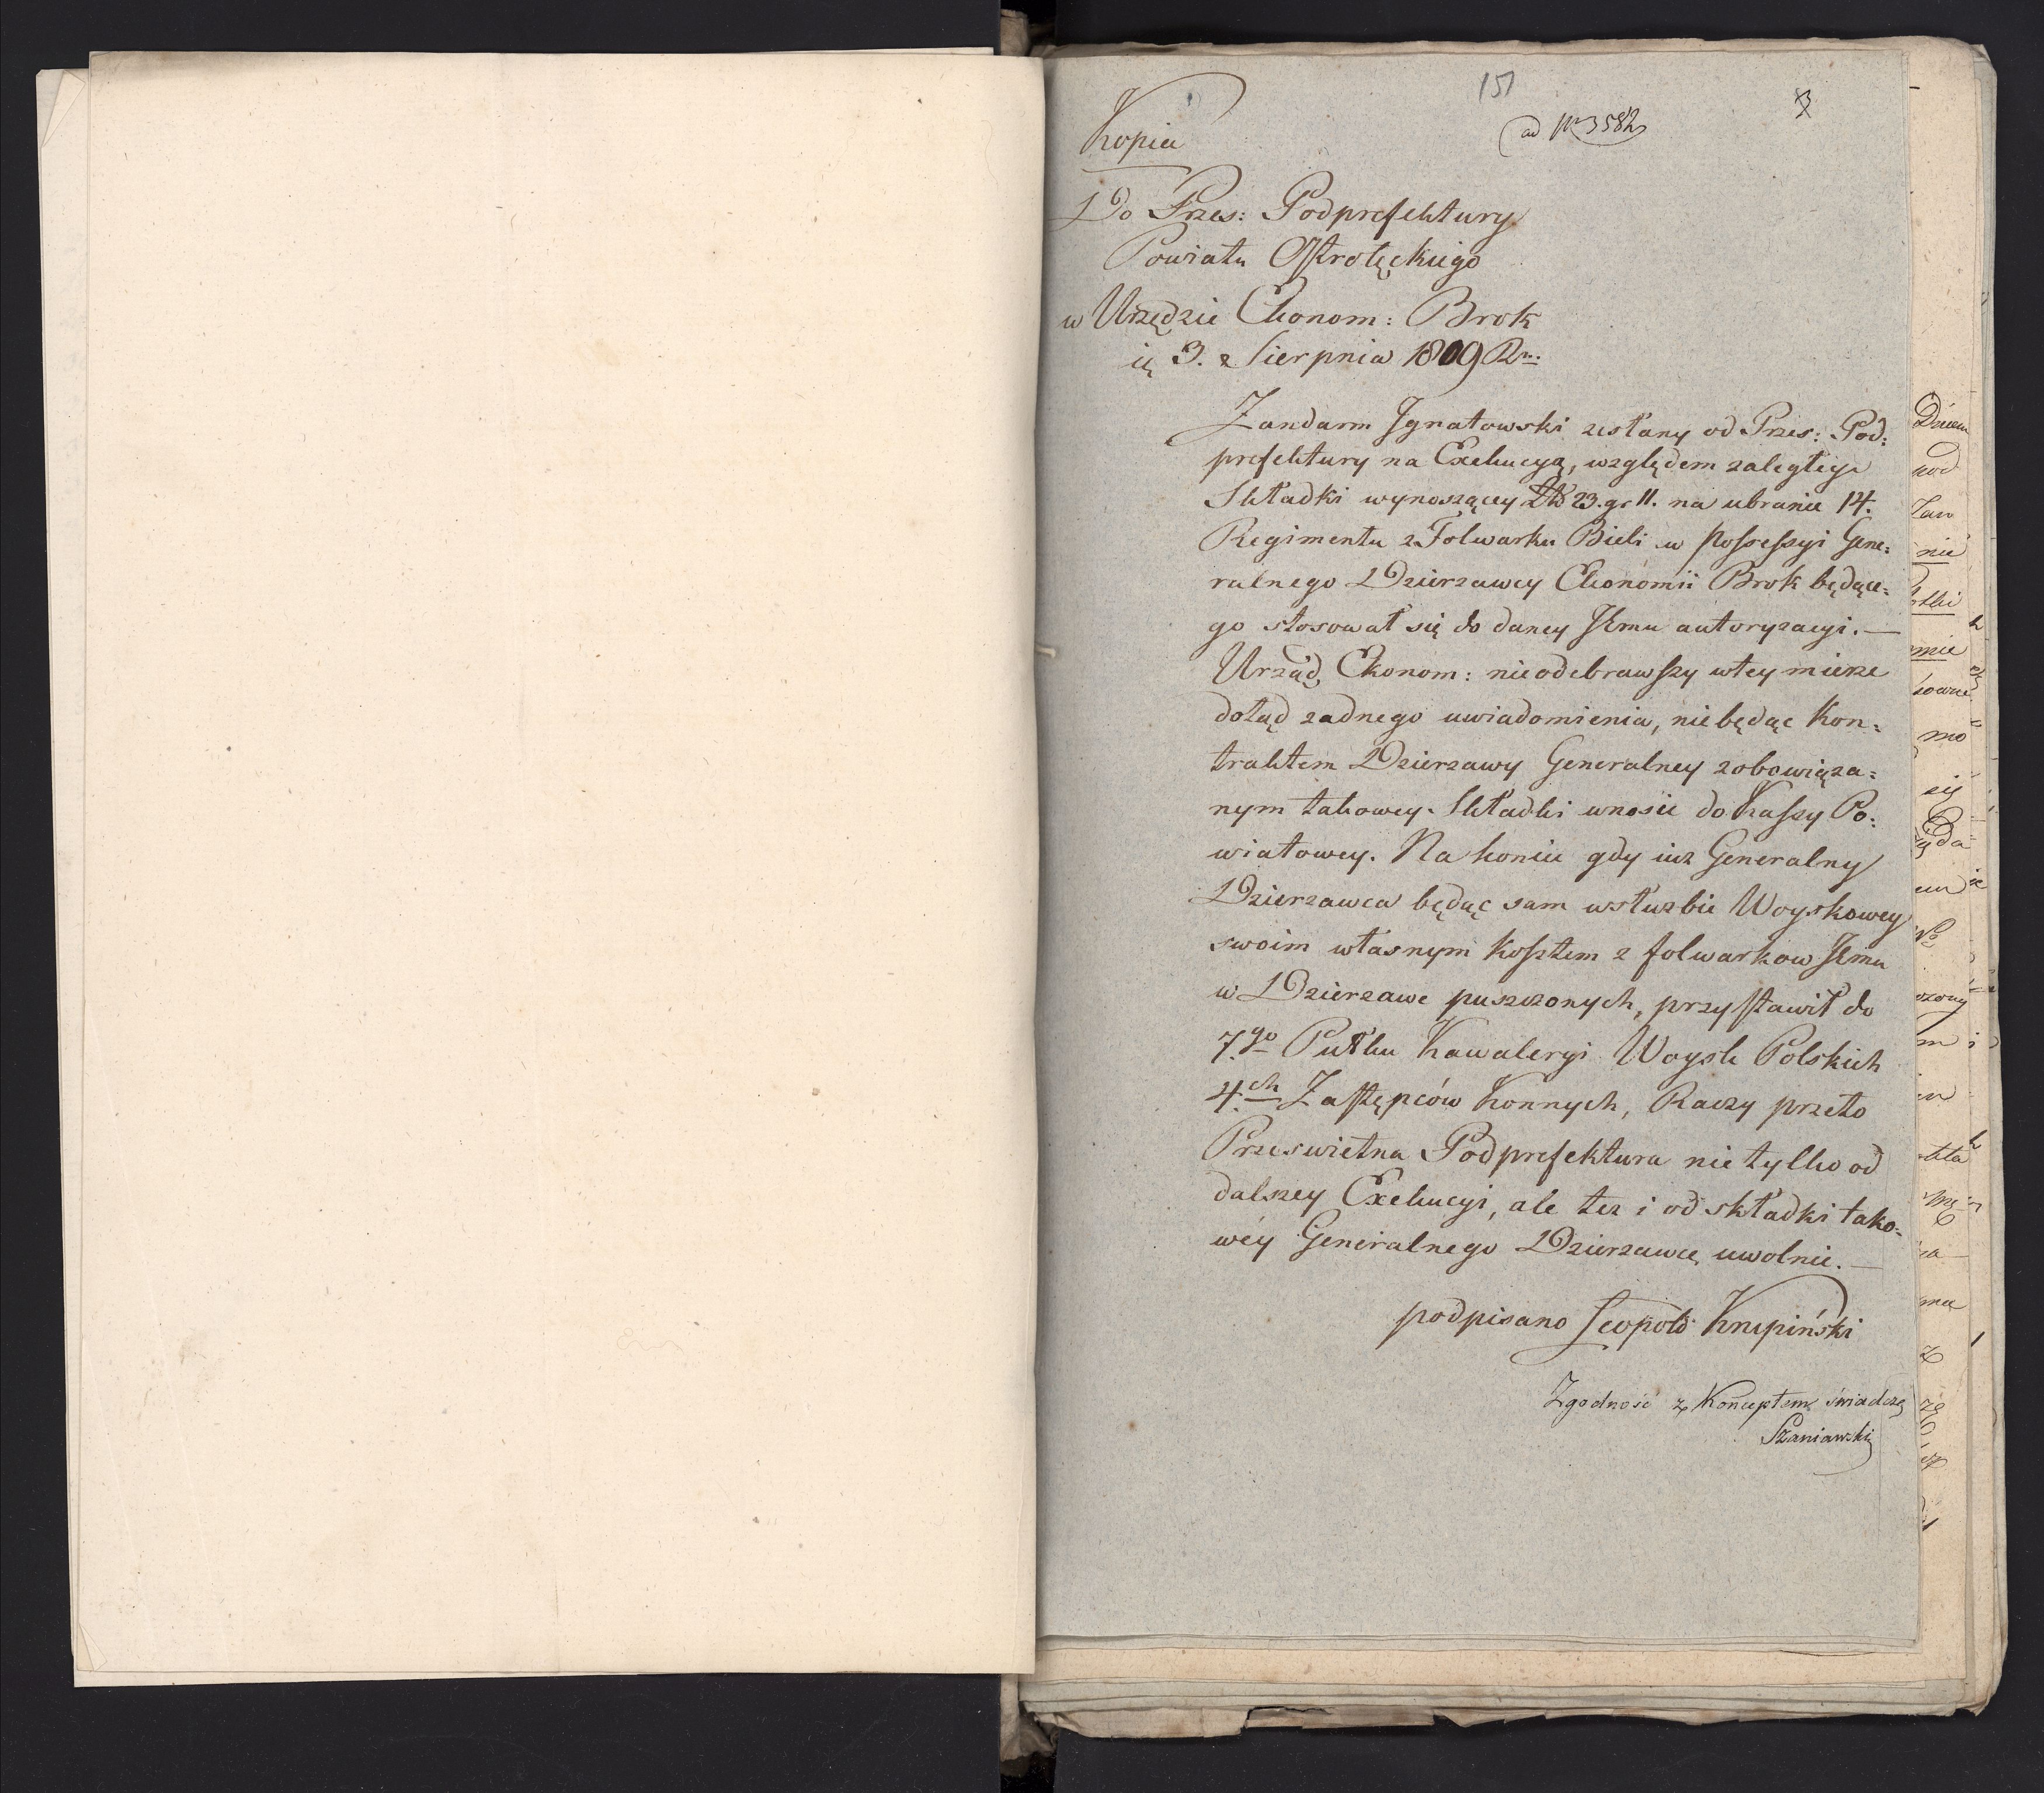 151
ad Nr 3582
Kopia
Do Przes: Podprefektury
Powiatu Ostrołęckiego
w Urzędzie Ekonom: Brok
3. Sierpnia 1809 R.
Zandarm Ignatowski zesłany od Przes: Pod:
prefektury na Exekucyą, względem zaległey
Składki wynoszącey Zł 23. gr 11. na ubranie 14.
Regimentu z Folwarku Bieli w Possessyi Gene:
ralnego Dzierzawcy Ekonomii Brok będące:
go stosował się do daney Jemu autoryzacyi. —
Urząd Ekonom: nieodebrawszy wtey mierze
dotąd zadnego uwiadomienia, niebędąc Kon:
traktem Dzierzawy Generalney zobowiąza:
nym takowey Składki wnosić do Kassy Po:
wiatowey. Na koniec gdy iuz Generalny
Dzierzawca będąc sam wsłuzbie Woyskowey
swoim własnym Kosztem z folwarkow Jemu
w Dzierzawe puszczonych, przystawił do
7.go Pułku Kawaleryi Woysk Polskich
4.ch Zastępców Konnych, Raczy przeto
Przeswietna Podprefektura nie tylko od
dalszey Exekucyi, ale tez i od składki tako:
wéy Generalnego Dzierzawcę uwolnić. —
podpisano Leopold Krupiński
Zgodność z Konceptem świadczę
Szaniawski